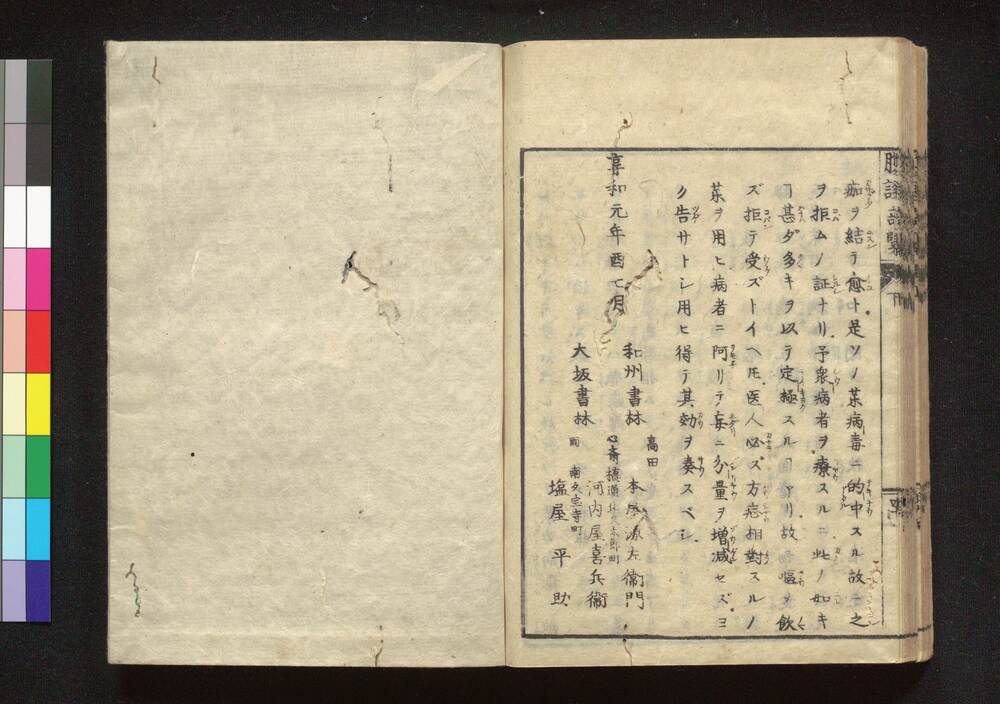 痂ヲ結テ愈ト是ソノ薬病毒ニ的中スル故ニ之
ヲ拒ムノ証ナリ予衆病者ヲ療スルニ此ノ如キ
ヿ甚ダ多キヲ以テ定極スルヿアリ故ニ嘔ヲ飲
ズ拒テ受ズトイヘ𪜈医人必ズ方症相對スルノ
薬ヲ用ヒ病者ニ阿リテ妄ニ分量ヲ増減セズヨ
ク告サトシ用ヒ得テ其効ヲ奏スベシ
享和元年酉七月
和州書林 高田 本屋源左衞門
大坂書林 心斎橋通 河内屋喜兵衞
同 南久宝寺町 塩屋平助